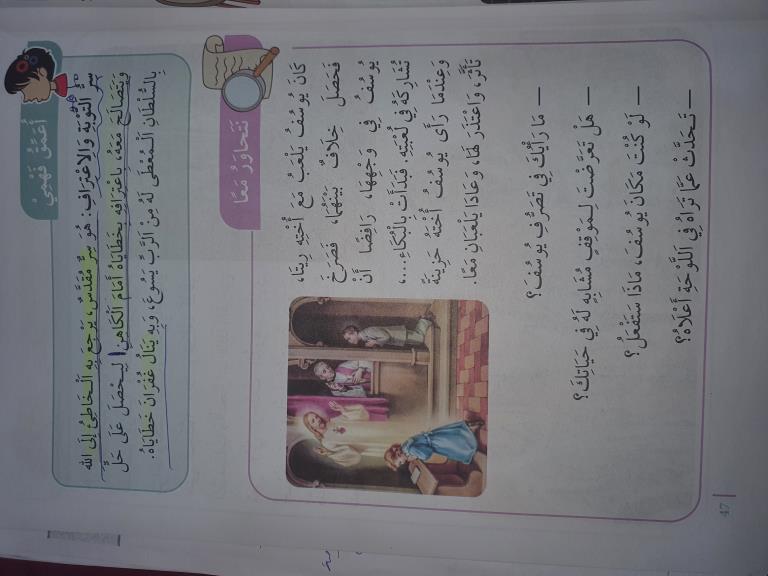 أُعَمِّقُ فَهْمِيْ
سِرُّ التَّوْبَةِ وَالِاعْتِرَافِ: هُوَ سِرٌّ مُقَدَّسٌ، يَرْجِعُ بِهِ الْخَاطِئُ إِلَى اللهِ
وَيَتَصَالَحُ مَعَهُ، بِاعْتِرَافِهِ بِخَطَايَاهُ أَمَامَ الْكَاهِنِ لِيَحْصَلَ عَلَى حَلٍّ
بِالسُّلْطَانِ الْمُعْطَى لَهُ مِنَ الرَّبِّ يَسُوعَ، وَبِهِ يَنَالُ غُفْرَانَ خَطَايَاهُ.
نَتَحَاوَرُ مَعًا
كَانَ يُوسُفُ يَلْعَبُ مَعَ أُخْتِهِ رِيتَا،
فَحَصَلَ خِلَافٌ بَيْنَهُمَا، فَصَرَخَ
يُوسُفُ فِي وَجْهِهَا، رَافِضًا أَنْ
تُشَارِكَهُ فِي لُعْبَتِهِ فَبَدَأَتْ بِالْبُكَاءِ....،
وَعِنْدَمَا رَأَى يُوسُفُ أُخْتَهُ حَزِينَةً
تَأَثَّرَ، وَاعْتَذَرَ لَهَا، وَعَادَا يَلْعَبَانِ مَعًا.
– مَا رَأْيُكَ فِي تَصَرُّفِ يُوسُفَ؟
– هَلْ تَعَرَّضْتَ لِمَوْقِفٍ مُشَابِهٍ لَهُ فِي حَيَاتِكَ؟
– لَوْ كُنْتَ مَكَانَ يُوسُفَ، مَاذَا سَتَفْعَلُ؟
– تَحَدَّثْ عَمَّا تَرَاهُ فِي اللَّوْحَةِ أَعْلَاهُ؟
47